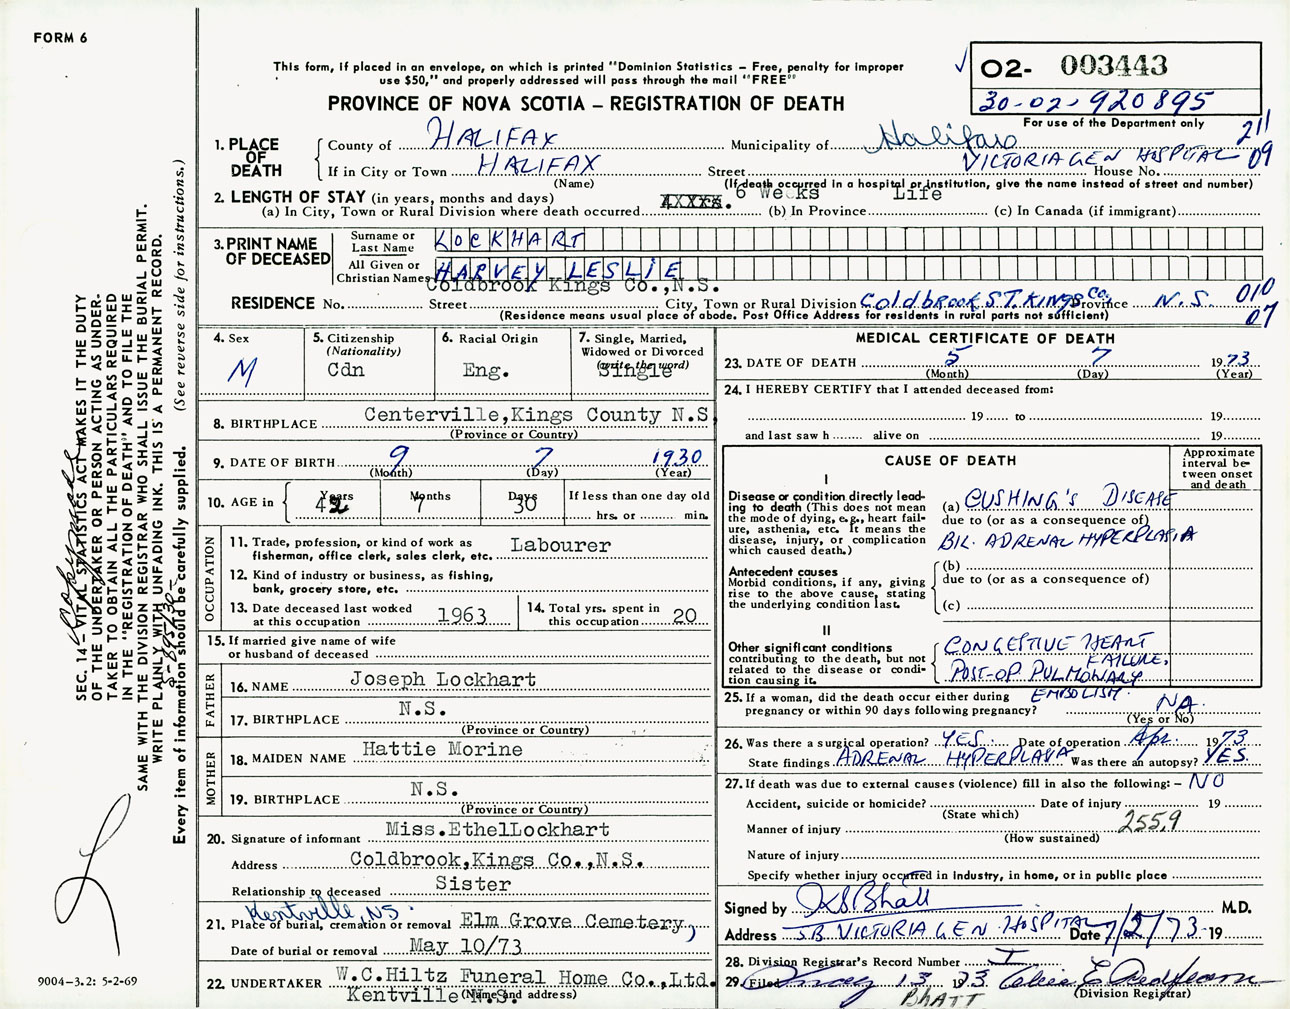 FORM 6
This form, if placed in an envelope, on which is printed "Dominion Statistics – Free, penalty for improper
use $50," and properly addressed will pass through the mail "FREE"
O2- 003443
30-02-920895
For use of the Department only
PROVINCE OF NOVA SCOTIA – REGISTRATION OF DEATH
211
09
1. PLACE OF DEATH
County of HALIFAX Municipality of Halifax
If in City or Town HALIFAX Street VICTORIA GEN HOSPITAL House No.
(Name) (If death occurred in a hospital or institution, give the name instead of street and number)
2. LENGTH OF STAY (in years, months and days) 6 Weeks Life
(a) In City, Town or Rural Division where death occurred (b) In Province (c) In Canada (if immigrant)
3. PRINT NAME OF DECEASED
Surname or Last Name LOCKHART
All Given or Christian Names HARVEY LESLIE
Coldbrook Kings Co.,N.S.
RESIDENCE No. Street City, Town or Rural Division Coldbrook ST. Kings Co. Province N.S. 010
07
(Residence means usual place of abode. Post Office Address for residents in rural parts not sufficient)
4. Sex
M
5. Citizenship
(Nationality)
Cdn
6. Racial Origin
Eng.
7. Single, Married,
Widowed or Divorced
(write the word)
Single
8. BIRTHPLACE Centerville,Kings County N.S
(Province or Country)
9. DATE OF BIRTH 9 7 1930
(Month) (Day) (Year)
10. AGE in Years 42 Months 7 Days 30 If less than one day old
hrs. or min.
OCCUPATION
11. Trade, profession, or kind of work as
fisherman, office clerk, sales clerk, etc. Labourer
12. Kind of industry or business, as fishing,
bank, grocery store, etc.
13. Date deceased last worked
at this occupation 1963
14. Total yrs. spent in
this occupation 20
15. If married give name of wife
or husband of deceased
FATHER
16. NAME Joseph Lockhart
17. BIRTHPLACE N.S.
(Province or Country)
MOTHER
18. MAIDEN NAME Hattie Morine
19. BIRTHPLACE N.S.
(Province or Country)
20. Signature of informant Miss.EthelLockhart
Address Coldbrook,Kings Co.,N.S.
Relationship to deceased Sister
Kentville, NS.
21. Place of burial, cremation or removal Elm Grove Cemetery,
Date of burial or removal May 10/73
22. UNDERTAKER W.C.Hiltz Funeral Home Co.,Ltd.
Kentville N.S.
(Name and address)
MEDICAL CERTIFICATE OF DEATH
23. DATE OF DEATH 5 7 1973
(Month) (Day) (Year)
24. I HEREBY CERTIFY that I attended deceased from:
19 to 19
and last saw h alive on 19
CAUSE OF DEATH
Approximate
interval be-
tween onset
and death
I
Disease or condition directly lead-
ing to death (This does not mean
the mode of dying, e.g., heart fail-
ure, asthenia, etc. It means the
disease, injury, or complication
which caused death.)
(a) CUSHING'S DISEASE
due to (or as a consequence of)
BIL. ADRENAL HYPERPLASIA
Antecedent causes
Morbid conditions, if any, giving
rise to the above cause, stating
the underlying condition last.
(b)
due to (or as a consequence of)
(c)
II
Other significant conditions
contributing to the death, but not
related to the disease or condi-
tion causing it.
CONGESTIVE HEART
FAILURE,
POST-OP PULMONARY
EMBOLISM.
25. If a woman, did the death occur either during
pregnancy or within 90 days following pregnancy? NA.
(Yes or No)
26. Was there a surgical operation? YES. Date of operation Apr. 1973
State findings ADRENAL HYPERPLASIA Was there an autopsy? YES.
27. If death was due to external causes (violence) fill in also the following: – NO
Accident, suicide or homicide? Date of injury 19
(State which)
Manner of injury 255.9
(How sustained)
Nature of injury
Specify whether injury occurred in industry, in home, or in public place
Signed by Bhatt M.D.
Address 5B VICTORIA GEN HOSPITAL Date 7/5/73 19
28. Division Registrar's Record Number
29. Filed May 13 1973
(Division Registrar)
BHATT
SEC. 14 – VITAL STATISTICS ACT MAKES IT THE DUTY
OF THE UNDERTAKER OR PERSON ACTING AS UNDER-
TAKER TO OBTAIN ALL THE PARTICULARS REQUIRED
IN THE "REGISTRATION OF DEATH" AND TO FILE THE
SAME WITH THE DIVISION REGISTRAR WHO SHALL ISSUE THE BURIAL PERMIT.
WRITE PLAINLY WITH UNFADING INK. THIS IS A PERMANENT RECORD.
Every item of information should be carefully supplied. (See reverse side for instructions.)
9004–3.2: 5-2-69